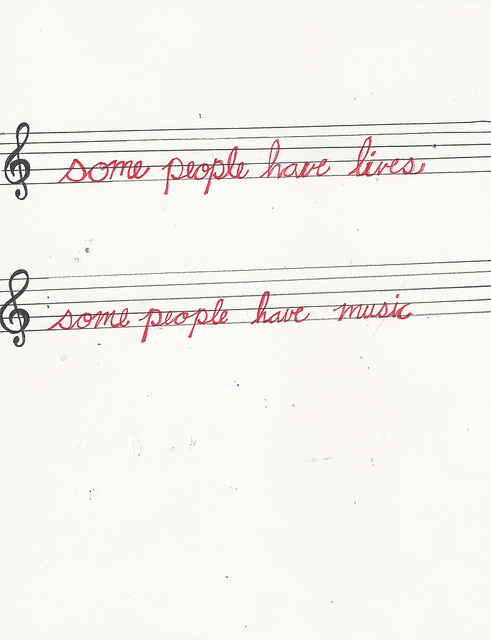 some people have lives
some people have music